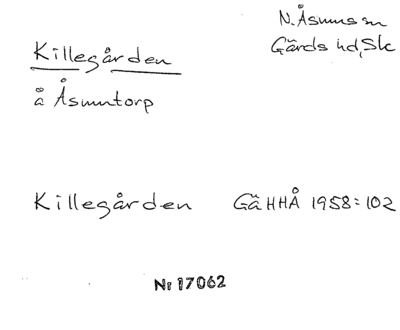 N. Åsums sn
Gärds hd, Sk
Killegården
å Åsumtorp
Killegården GäHHÅ 1958:102
Nr 17062